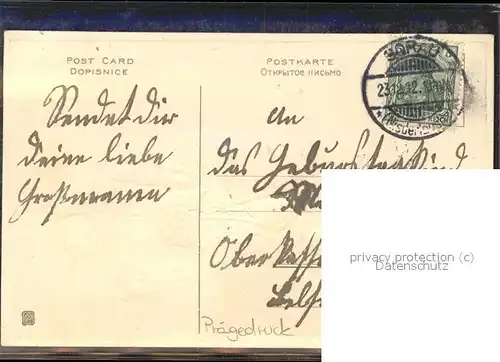 POST CARD
DOPISNICE
POSTKARTE
ОТКРЫТОЕ ПИСЬМО
SORAU
23.12.12.
Sendet dir
deine liebe
Großmama
An
das Geburtstagskind
Oberkassel
Prägedruck
privacy protection (c)
Datenschutz